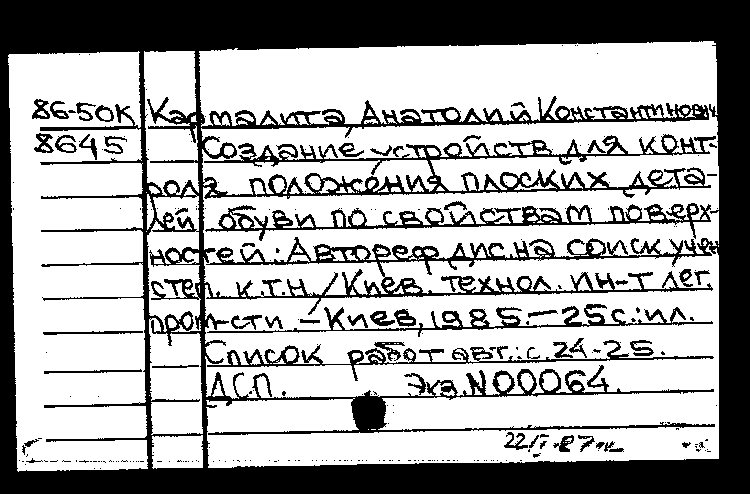 86-50К Кармалита, Анатолий Константинович
8645 Создание устройств для конт-
роля положения плоских дета-
лей обуви по свойствам поверх-
ностей: Автореф. дис. на соиск. учен.
степ. к.т.н. / Киев. технол. ин-т лег.
пром-сти. – Киев, 1985. – 25 с.: ил.
Список работ авт.: с. 24-25.
ДСП. Экз. N00064.